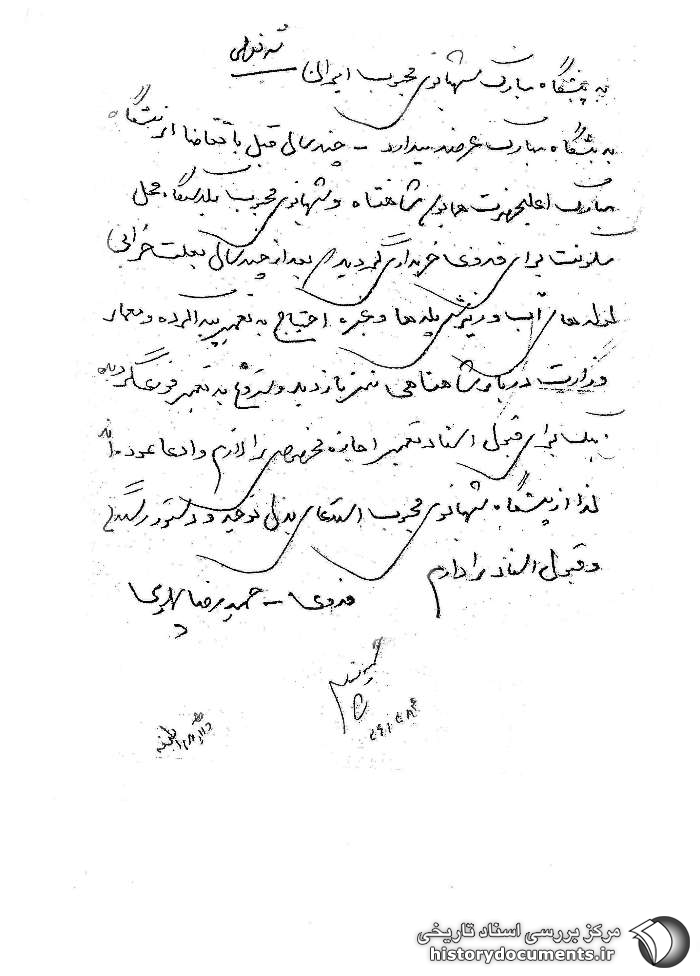 به پیشگاه مبارک شهبانوی محبوب ایران
به پیشگاه مبارک عرضه میدارد - چند سال قبل با تقاضا از پیشگاه
مبارک اعلیحضرت همایون شاهنشاه و شهبانوی محبوب یکدستگاه محل
سکونت برای فدوی خریداری گردید بعد از چند سال بعلت خرابی
لوله های آب و ریزش پله ها و غیره احتیاج به تعمیر پیدا کرده و معمار
وزارت دربار شاهنشاهی نیز بازدید و شروع به تعمیر فوری گردیده
بانک برای قبول اسناد تعمیر اجازه مخصوص را لازم و ادعا نموده اند
لذا از پیشگاه شهبانوی محبوب استدعای بذل توجه و دستور رسیدگی
و قبول اسناد را دارم
فدوی - حمیدرضا پهلوی
مرکز بررسی اسناد تاریخی
historydocuments.ir